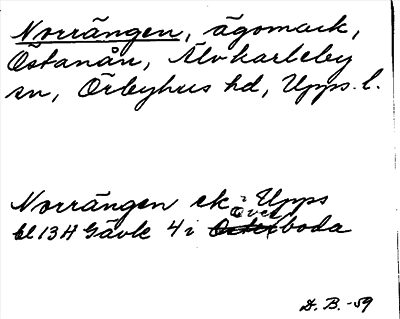 Norrängen, ägomark,
Östanån, Älvkarleby
sn, Örbyhus hd, Upps. l.
Norrängen ek i Upps
bl 13H Gävle 4 i Överboda
D. B. -59